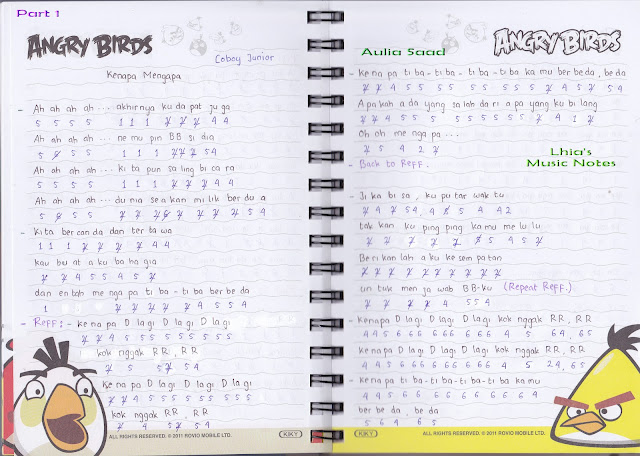 Part 1
ANGRY BIRDS
Coboy Junior
Kenapa Mengapa
- Ah ah ah ah .... akhirnya ku da pat ju ga
5 5 5 5 1 1 1 7 7 7 4 4
Ah ah ah ah .... ne mu pin BB si dia
5 5 5 5 1 1 1 7 7 7 5 4
Ah ah ah ah .... ki ta pun sa ling bi ca ra
5 5 5 5 1 1 1 7 7 7 4 4
Ah ah ah ah .... du nia sea kan mi lik ber du a
- Kita ber can da dan ter ta wa
1 1 1 7 7 7 7 4 4
kau bu at a ku ba ha gia
7 7 4 5 5 4 5 7
dan en tah me nga pa ti ba - ti ba ber be da
- Reff : - ke na pa D la gi D la gi D la gi
7 7 4 5 5 5 5 5 5 5 5 5
kok nggak RR , RR
7 5 5 7 5 4
Ke na pa D la gi D la gi D la gi
kok nggak RR , RR
7 4 5 7 5 4
ALL RIGHTS RESERVED. © 2011 ROVIO MOBILE LTD.
KIKY
Aulia Saad
ANGRY BIRDS
- Ke na pa ti ba - ti ba - ti ba - ti ba ka mu ber be da , be da
Apa kah a da yang sa lah da ri a pa yang ku bi lang
Oh oh me nga pa ....
7 5 4 2 7
- Back to Reff .
Lhia's
Music Notes
- Ji ka bi sa , ku pu tar wak tu
tak kan ku ping ping ka mu me lu lu
Be ri kan lah a ku ke sem pa tan
7 7 7 7 7 7 7 7 7 7
un tuk men ja wab BB-ku (Repeat Reff.)
7 7 7 7 4 5 5 4
- Kenapa D lagi D lagi D lagi kok nggak RR , RR
4 4 5 6 6 6 6 6 6 6 6 6 4 5 6 4 , 6 5
Kenapa D lagi D lagi D lagi kok nggak RR , RR
4 4 5 6 6 6 6 6 6 6 6 6 4 5 2 4 , 6 5
- Ke na pa ti ba - ti ba - ti ba - ti ba ka mu
4 4 5 6 6 6 6 6 6 6 6 6 4
ber be da , be da
5 6 4 6 5
KIKY
ALL RIGHTS RESERVED. © 2011 ROVIO MOBILE LTD.